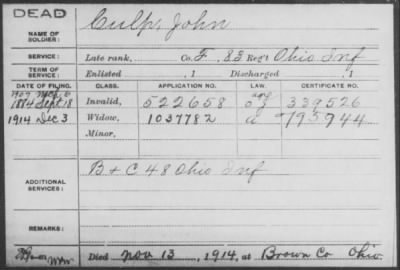 DEAD
NAME OF SOLDIER: Culp, John
SERVICE: Late rank, Co. F, 83 Reg't Ohio Inf
TERM OF SERVICE: Enlisted , 1 Discharged , 1
DATE OF FILING. CLASS. APPLICATION NO. LAW. CERTIFICATE NO.
1907
1884 Sept 18 Invalid, 522658 339526
1914 Dec 3 Widow, 1037782 795944
Minor,
ADDITIONAL SERVICES: B + C 48 Ohio Inf
REMARKS:
Died Nov 13, 1914, at Brown Co Ohio